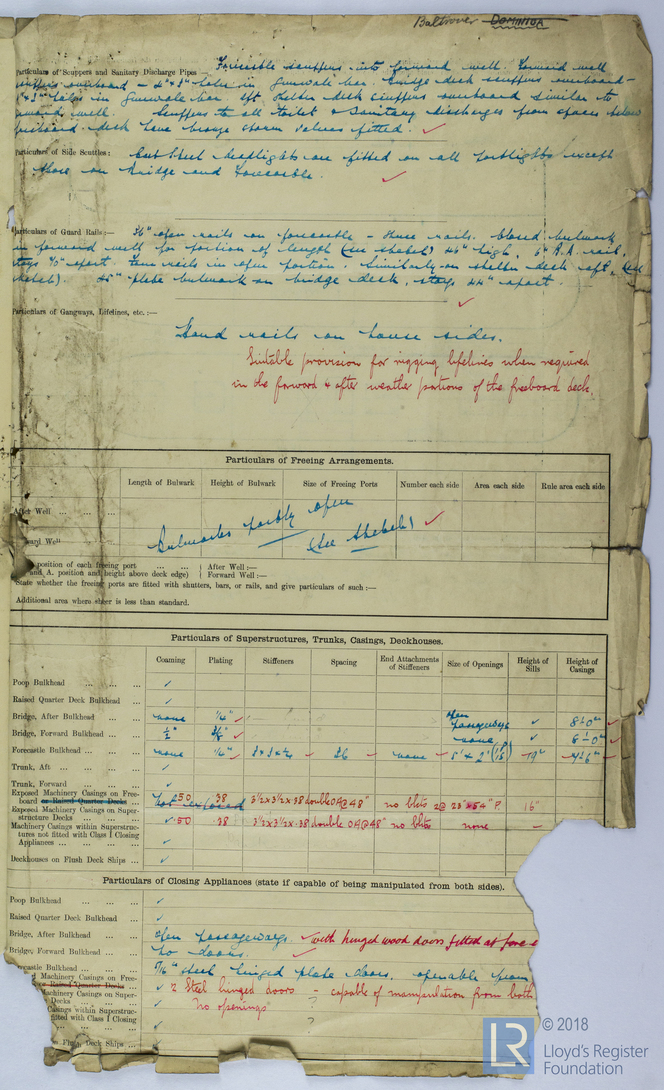 Baltrover DOMINICA
Particulars of Scuppers and Sanitary Discharge Pipes — Forecastle scuppers into forward well. Forward well
scuppers overboard – 4"x3" holes in gunwale bar. Bridge deck scuppers overboard –
holes in gunwale bar. Aft shelter deck scuppers overboard similar to
forward well. Scuppers to all toilet & sanitary discharges from spaces below
freeboard deck have bronze storm valves fitted. ✓
Particulars of Side Scuttles: Cast Steel deadlights are fitted on all portlights except
those on Bridge and Forecastle. ✓
Particulars of Guard Rails:— 36" open rails on forecastle – three rails. Closed bulwark
in forward well for portion of length (see sketch) 46" high, 6" B.A. rail,
stays apart. Four rails in open portion. Similarly on shelter deck aft, (see
sketch). 45" plate bulwark on bridge deck, stays 44" apart. ✓
Particulars of Gangways, Lifelines, etc. :—
Hand rails on house sides.
Suitable provision for rigging lifelines when required
in the forward & after weather portions of the freeboard deck.
Particulars of Freeing Arrangements.
Length of Bulwark Height of Bulwark Size of Freeing Ports Number each side Area each side Rule area each side
After Well
Forward Well Bulwarks partly open (See Sketch) ✓
position of each freeing port After Well :—
and A. position and height above deck edge) Forward Well :—
State whether the freeing ports are fitted with shutters, bars, or rails, and give particulars of such :—
Additional area where sheer is less than standard.
Particulars of Superstructures, Trunks, Casings, Deckhouses.
Coaming Plating Stiffeners Spacing End Attachments of Stiffeners Size of Openings Height of Sills Height of Casings
Poop Bulkhead ✓
Raised Quarter Deck Bulkhead ✓
Bridge, After Bulkhead none 1/4" ✓ open passageways ✓ 8'-0" ✓
Bridge, Forward Bulkhead 1/2" 3/8" ✓ none ✓ 8'-0" ✓
Forecastle Bulkhead none 1/4" ✓ 36 none 5' x 2' 19" 7'-6" ✓
Trunk, Aft ✓
Trunk, Forward ✓
Exposed Machinery Casings on Free-
board or Raised Quarter Decks not exposed .50 .38 3½x3½x.38 double OA@48" no blkts 2@ 23"x54" P. 16"
Exposed Machinery Casings on Super-
structure Decks ✓ .50 .38 3½x3½x.38 double OA@48" no blkts none –
Machinery Casings within Superstruc-
tures not fitted with Class I Closing
Appliances ✓
Deckhouses on Flush Deck Ships ✓
Particulars of Closing Appliances (state if capable of being manipulated from both sides).
Poop Bulkhead ✓
Raised Quarter Deck Bulkhead ✓
Bridge, After Bulkhead open passageways. ✓ with hinged wood doors fitted at fore
Bridge, Forward Bulkhead no doors. ✓
Forecastle Bulkhead steel hinged plate doors. operable from
Machinery Casings on Free-
or Raised Quarter Decks ✓ 2 Steel hinged doors – capable of manipulation from both
Machinery Casings on Super-
Decks ✓ no openings ?
Casings within Superstruc-
fitted with Class I Closing
✓ ?
Flush Deck Ships ✓
LR © 2018
Lloyd's Register
Foundation